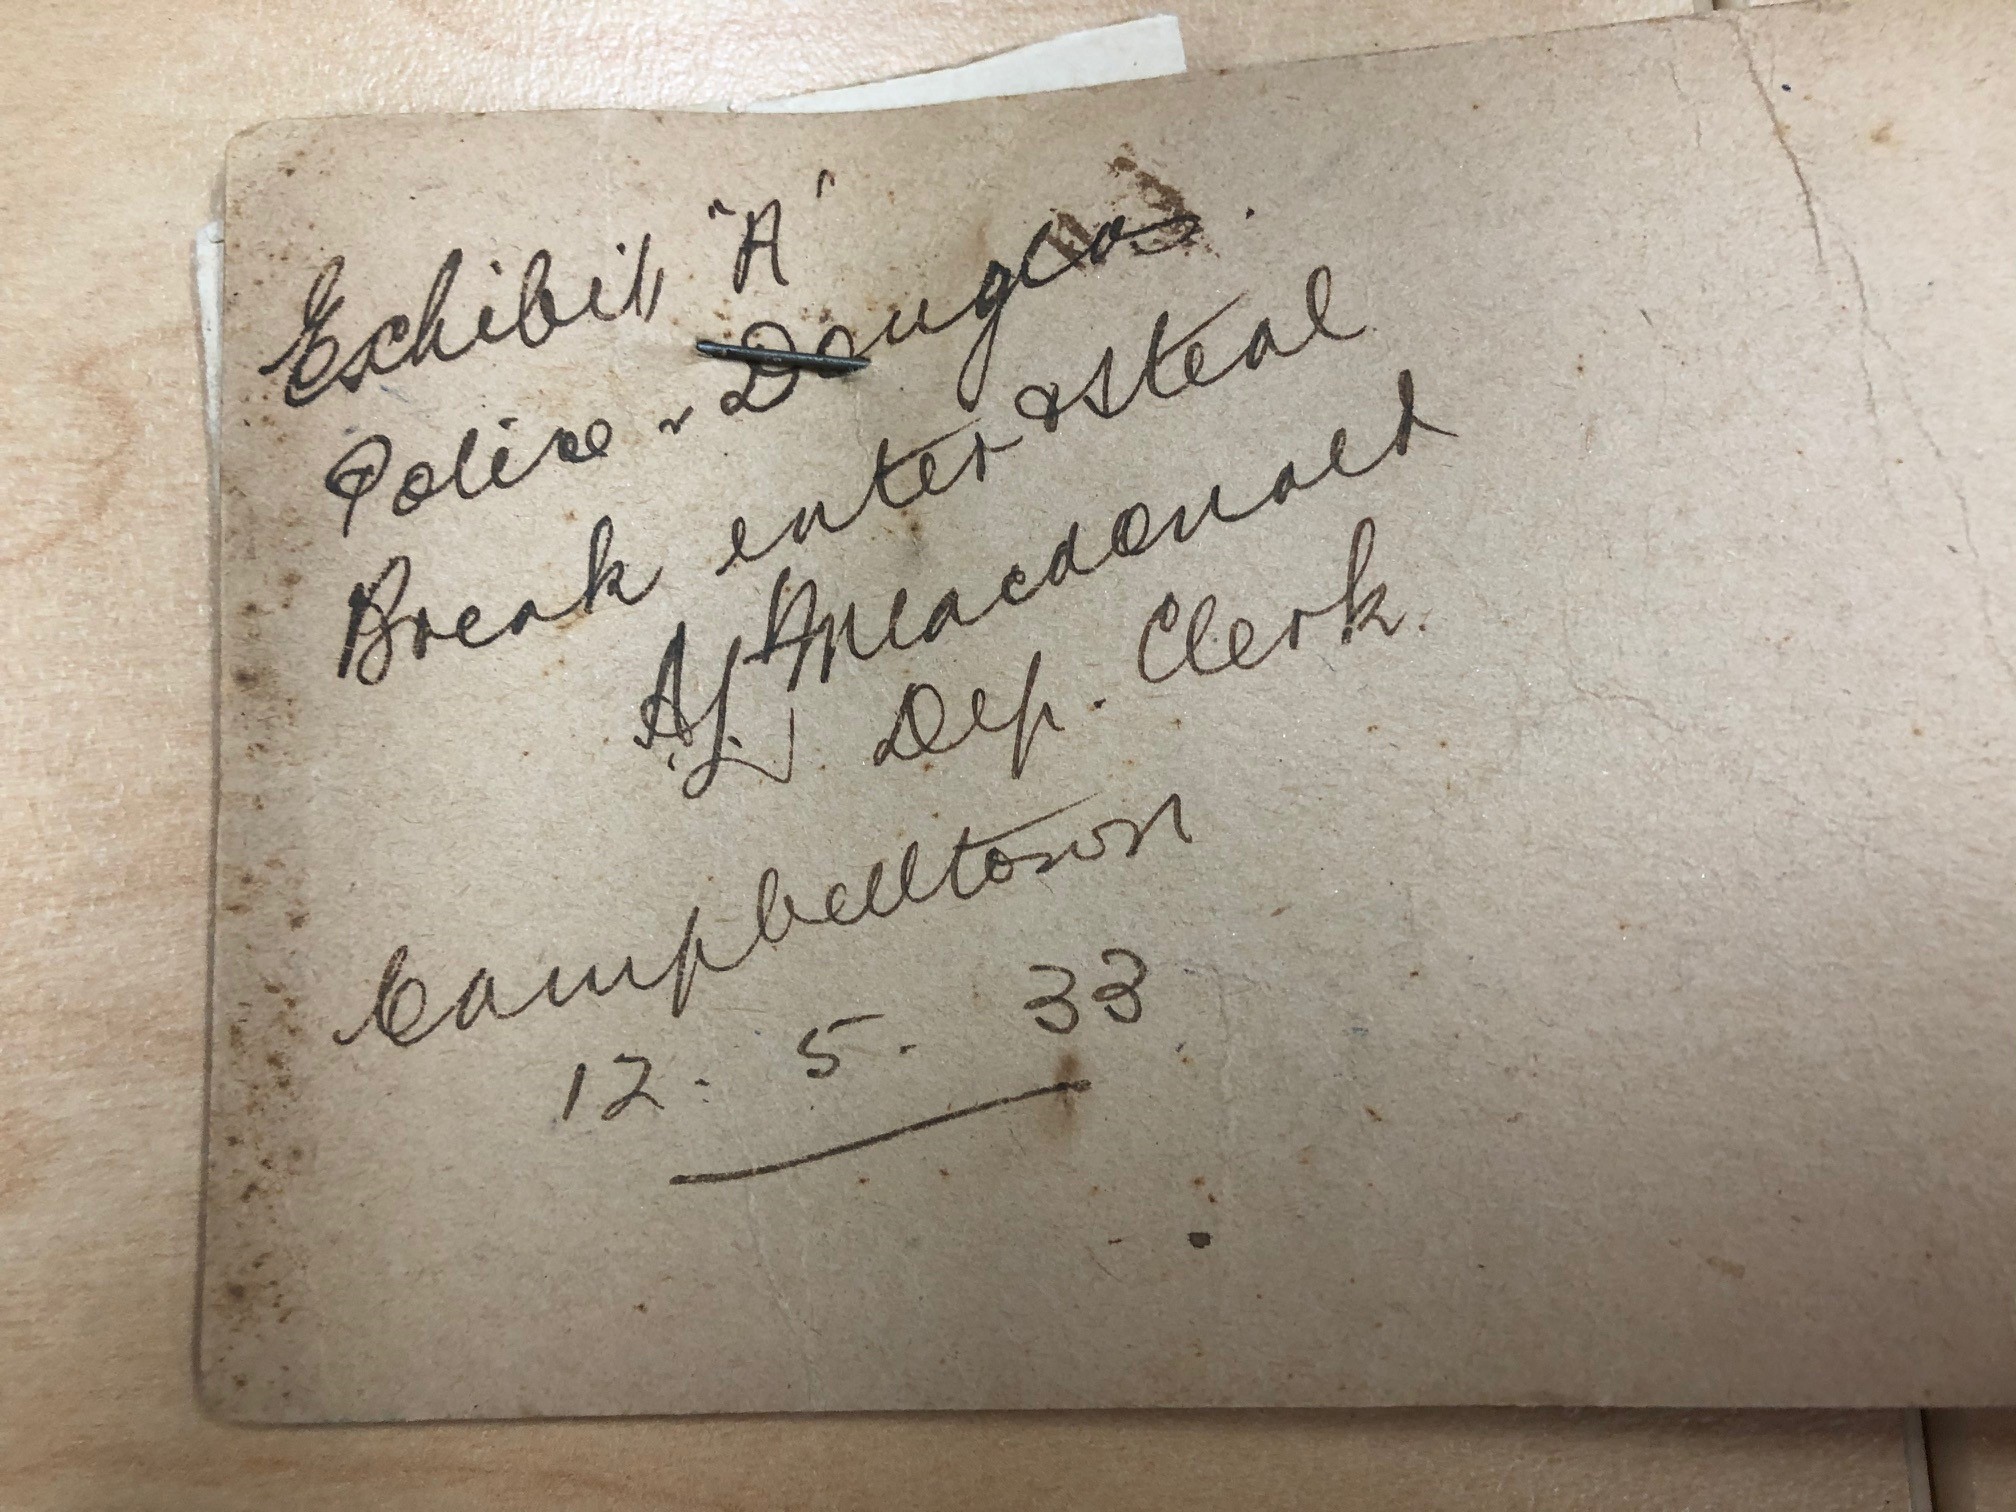 Exhibit "A"
Police v Douglas.
Break enter & steal
Macdonald
Dep. Clerk.
Campbelltown
12. 5. 33.